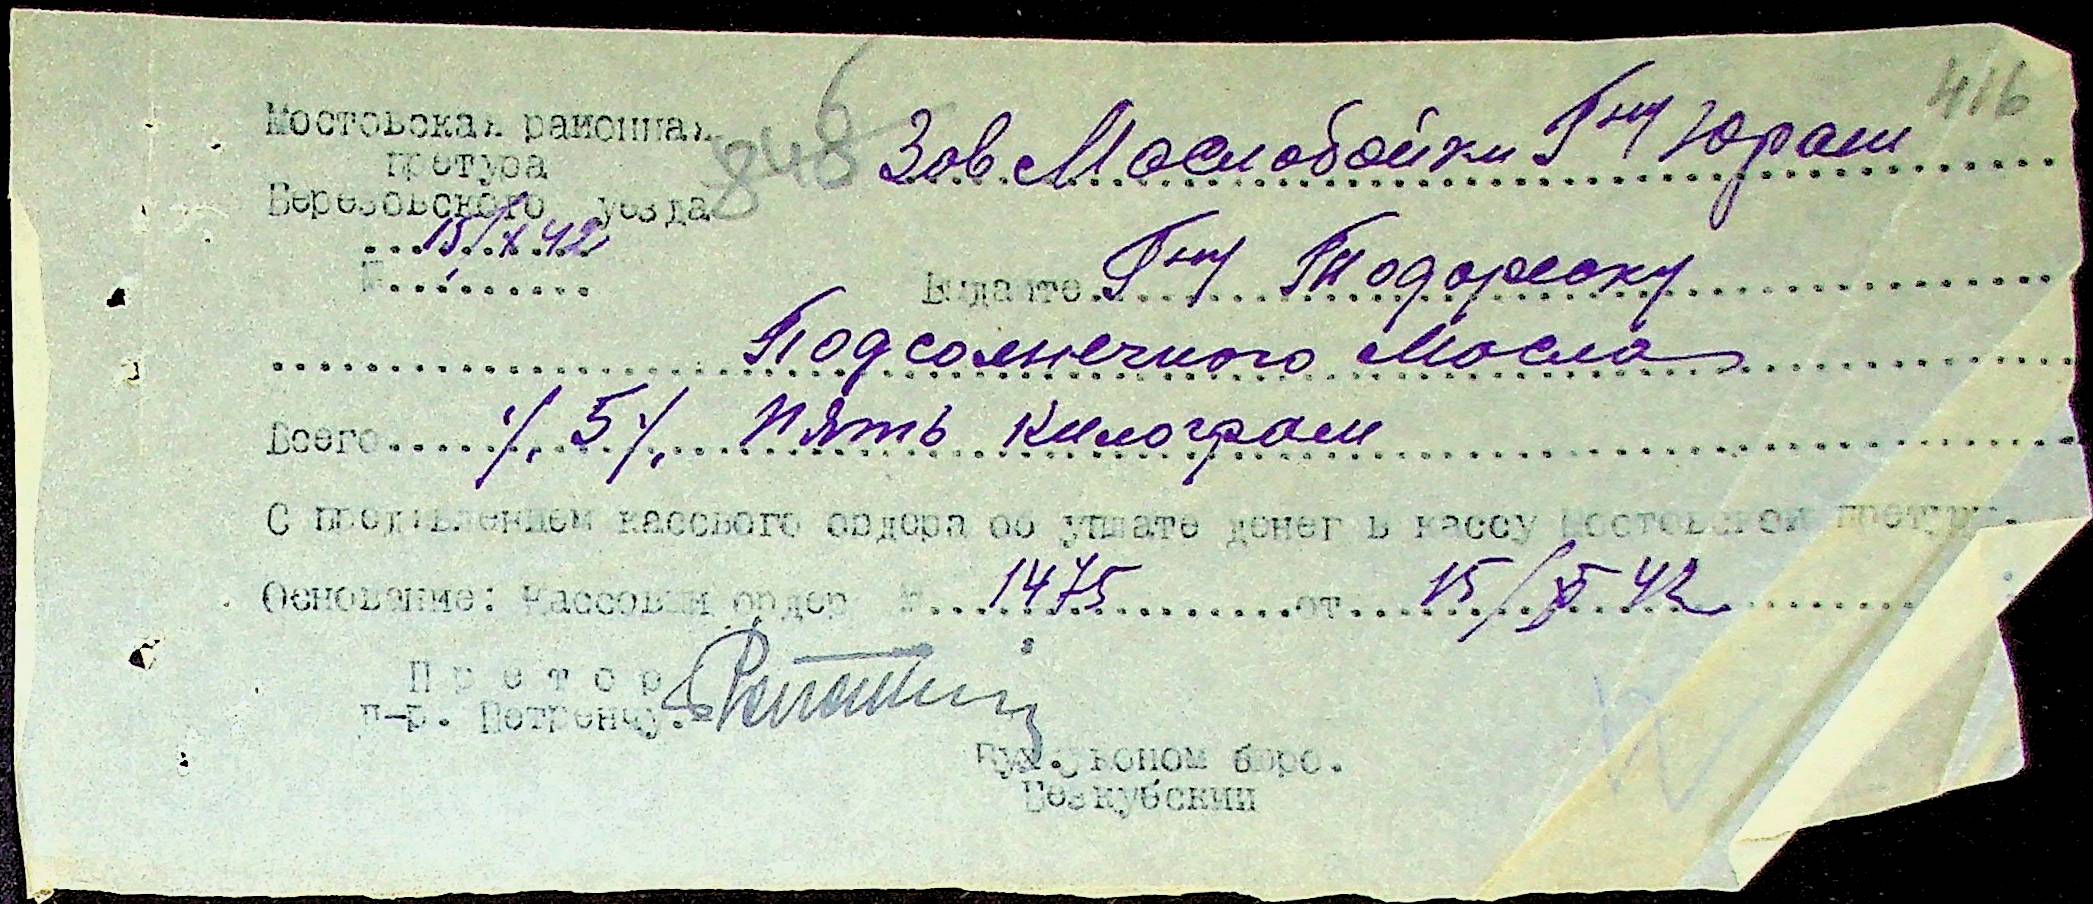 416
848
Мостовская районная
претура
Березовского уезда
15/X 42
№
Зав Маслобойки Гну Юраш
Выдайте Гну Тодореску
Подсолнечного Масла
Всего ./. 5 ./. Пять килограм
С пред'явлением кассвого ордера об уплате денег в кассу Мостовской претуры.
Основание: Кассовый ордер № 1475 от 15/X 42
Претор
п-р. Петренчу.
Бух. эконом бюро.
Безкубский